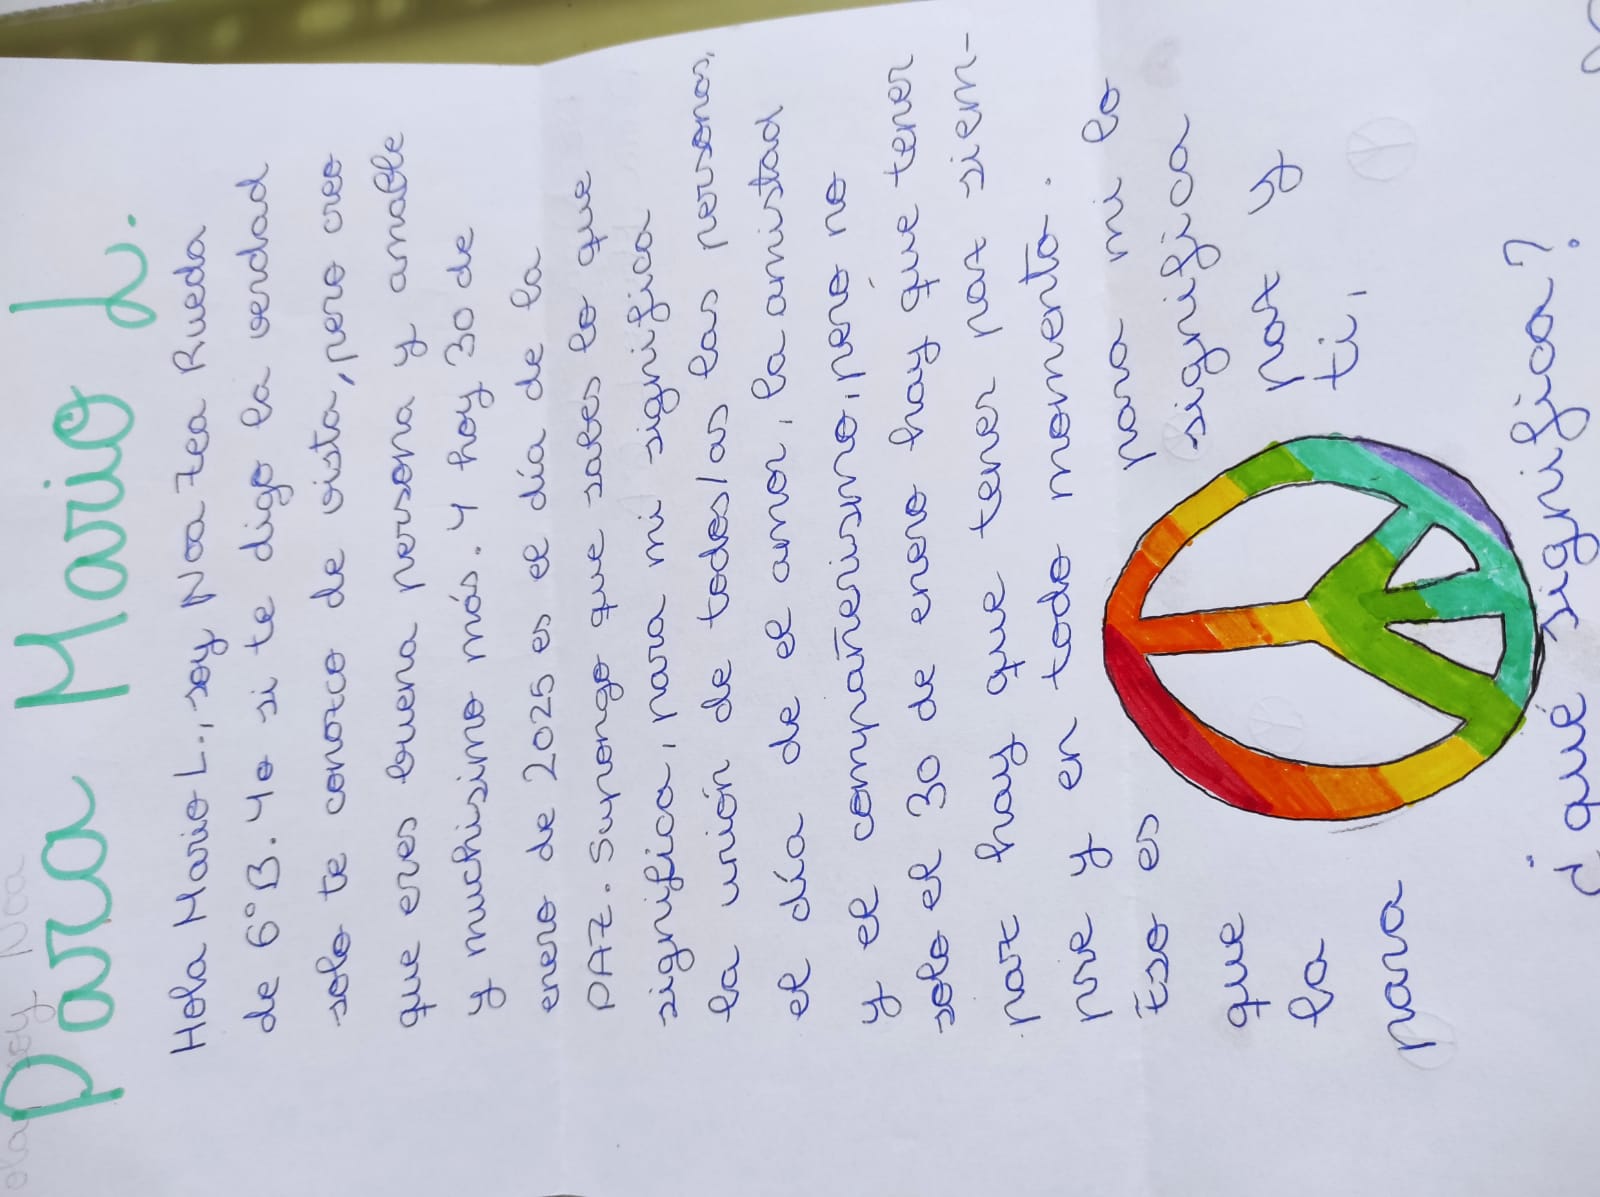 Para Mario L.
Hola Mario L., soy Noa Zea Rueda
de 6°B. Yo si te digo la verdad
solo te conozco de vista, pero creo
que eres buena persona y amable
y muchisimo más. Y hoy 30 de
enero de 2025 es el día de la
PAZ. Supongo que sabes lo que
significa, para mi significa
la unión de todos/as las personas,
el día de el amor, la amistad
y el compañerismo, pero no
solo el 30 de enero hay que tener
paz hay que tener paz siem-
pre y en todo momento.
Eso es para mi lo
que significa
la paz y
para ti,
¿qué significa?